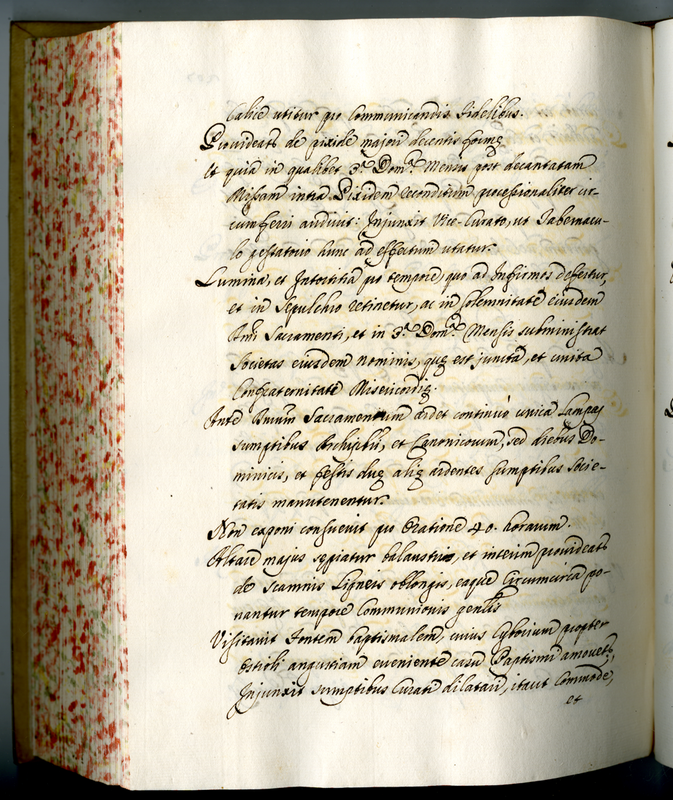 Calice utitur pro Communicandis Fidelibus.
Provideatr de pixide majori decentis formę
Et quia in qualibet 3.a Dom.ca Mensis post decantatam
Missam intra Pixidem reconditum processionaliter cir-
cumferri audivit: Injunxit Vice-Curato, ut Tabernacu-
lo gestatorio hunc ad effectum utatur.
Lumina, et Intortitia pro tempore quo ad Infirmos defertur,
et in Sepulchro retinetur, ac in solemnitate eiusdem
Smi Sacramenti, et in 3.a Dom.ca Mensis subministrat
Societas eiusdem nominis, quę est juncta, et unita
Confraternitati Misericordię.
Ante Smum Sacramentum ardet continuò unica Lampas
sumptibus Archiptri, et Canonicorum, sed diebus Do-
minicis, et festis duę alię ardentes sumptibus Socie-
tatis manutenentur.
Non exponi consuevit pro Oratione 40. horarum.
Altare majus sepiatur balaustris, et interim provideatr
de Scamnis Ligneis oblongis, eaque Circumcirca po-
nantur tempore Communionis genlis
Visitavit Fontem baptismalem, cuius Cyborium propter
Ostioli angustiam eveniente casu Baptismi amovetr,
Injunxit sumptibus Curati dilatari, itaut Commode,
et